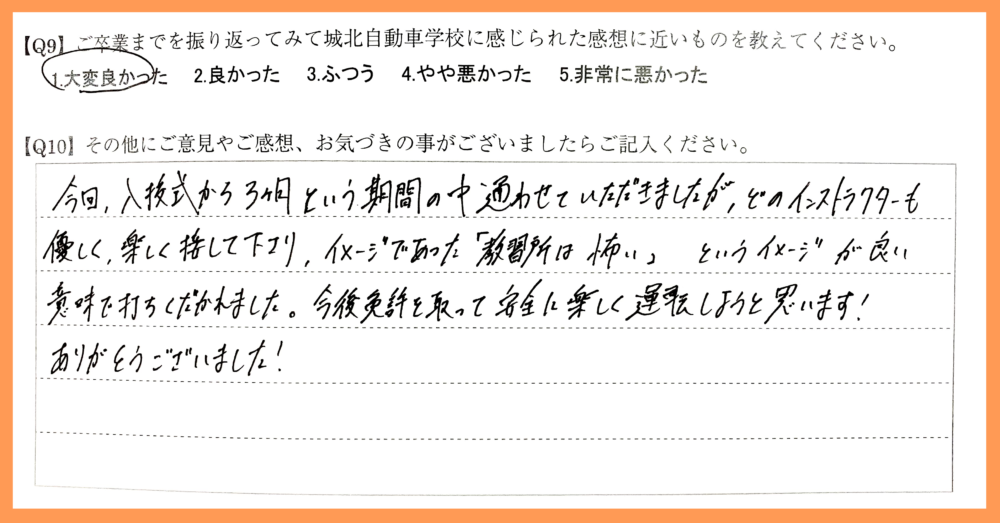 【Q9】ご卒業までを振り返ってみて城北自動車学校に感じられた感想に近いものを教えてください。
1.大変良かった 2.良かった 3.ふつう 4.やや悪かった 5.非常に悪かった
【Q10】その他にご意見やご感想、お気づきの事がございましたらご記入ください。
今回、入校式から3ヶ月という期間の中通わせていただきましたが、どのインストラクターも
優しく、楽しく接して下さり、イメージであった「教習所は怖い」というイメージが良い
意味で打ちくだかれました。今後免許を取って安全に楽しく運転しようと思います!
ありがとうございました!